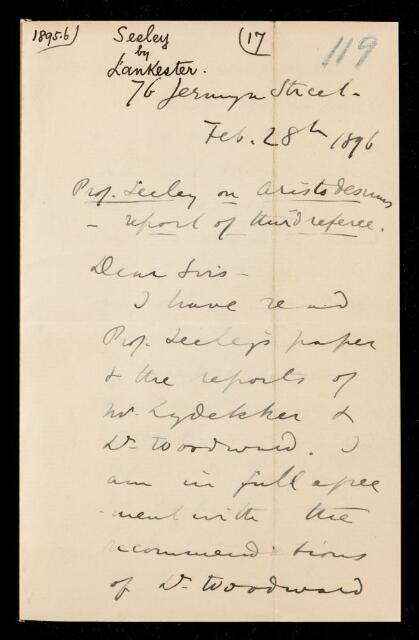 1895-6) Seeley (17 119
by
Lankester.
76 Jermyn Street -
Feb. 28th 1896
Prof. Seeley on Aristodesmus
- report of third referee.
Dear Sirs -
I have read
Prof. Seeley's paper
& the reports of
Mr. Lydekker &
Dr. Woodward. I
am in full agree
-ment with the
recommendations
of Dr. Woodward